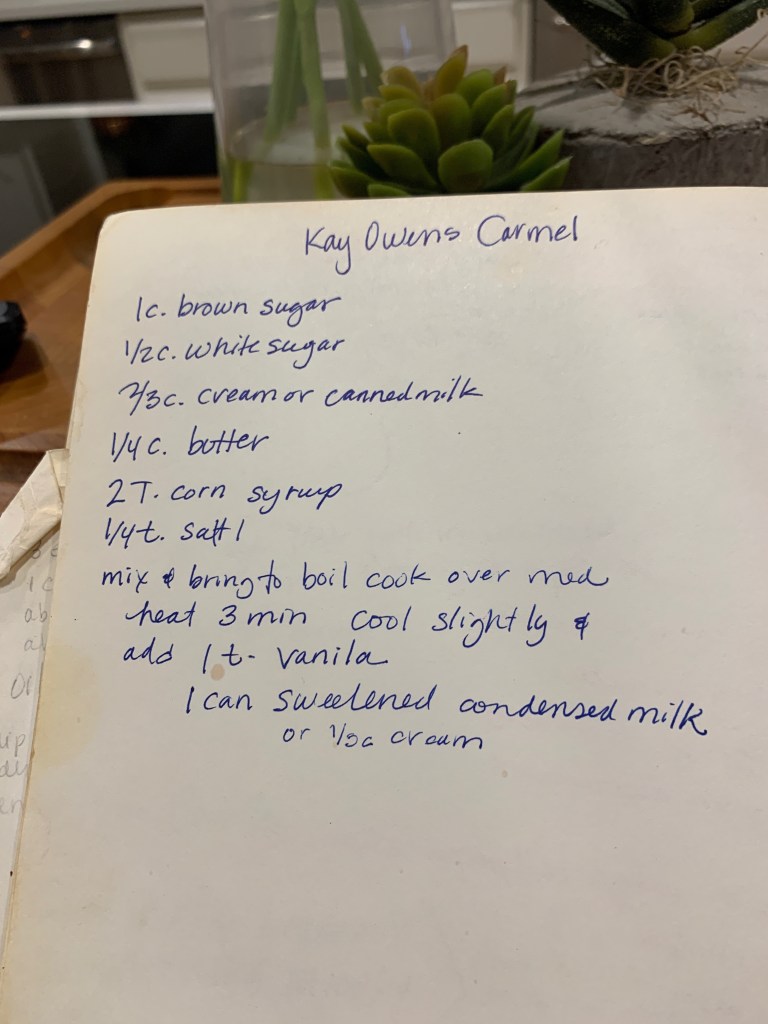 Kay Owens Carmel
1c. brown sugar
1/2c. white sugar
2/3c. cream or canned milk
1/4c. butter
2T. corn syrup
1/4t. salt
mix & bring to boil cook over med
heat 3 min cool slightly &
add 1t. vanila
1 can sweetened condensed milk
or 1/2c cream